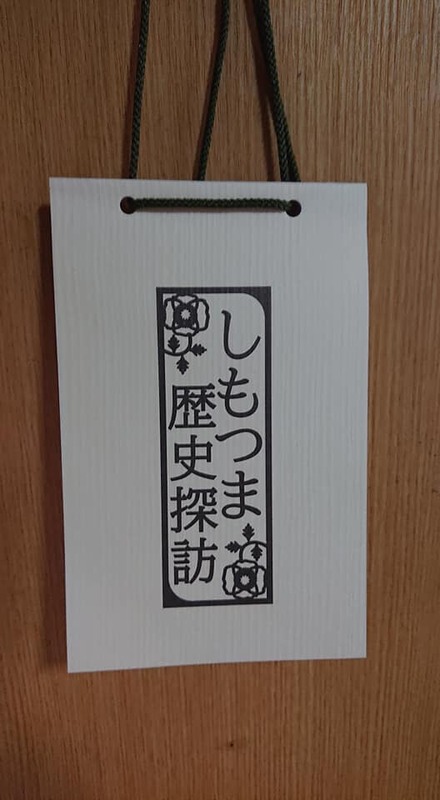 しもつま
歴史探訪